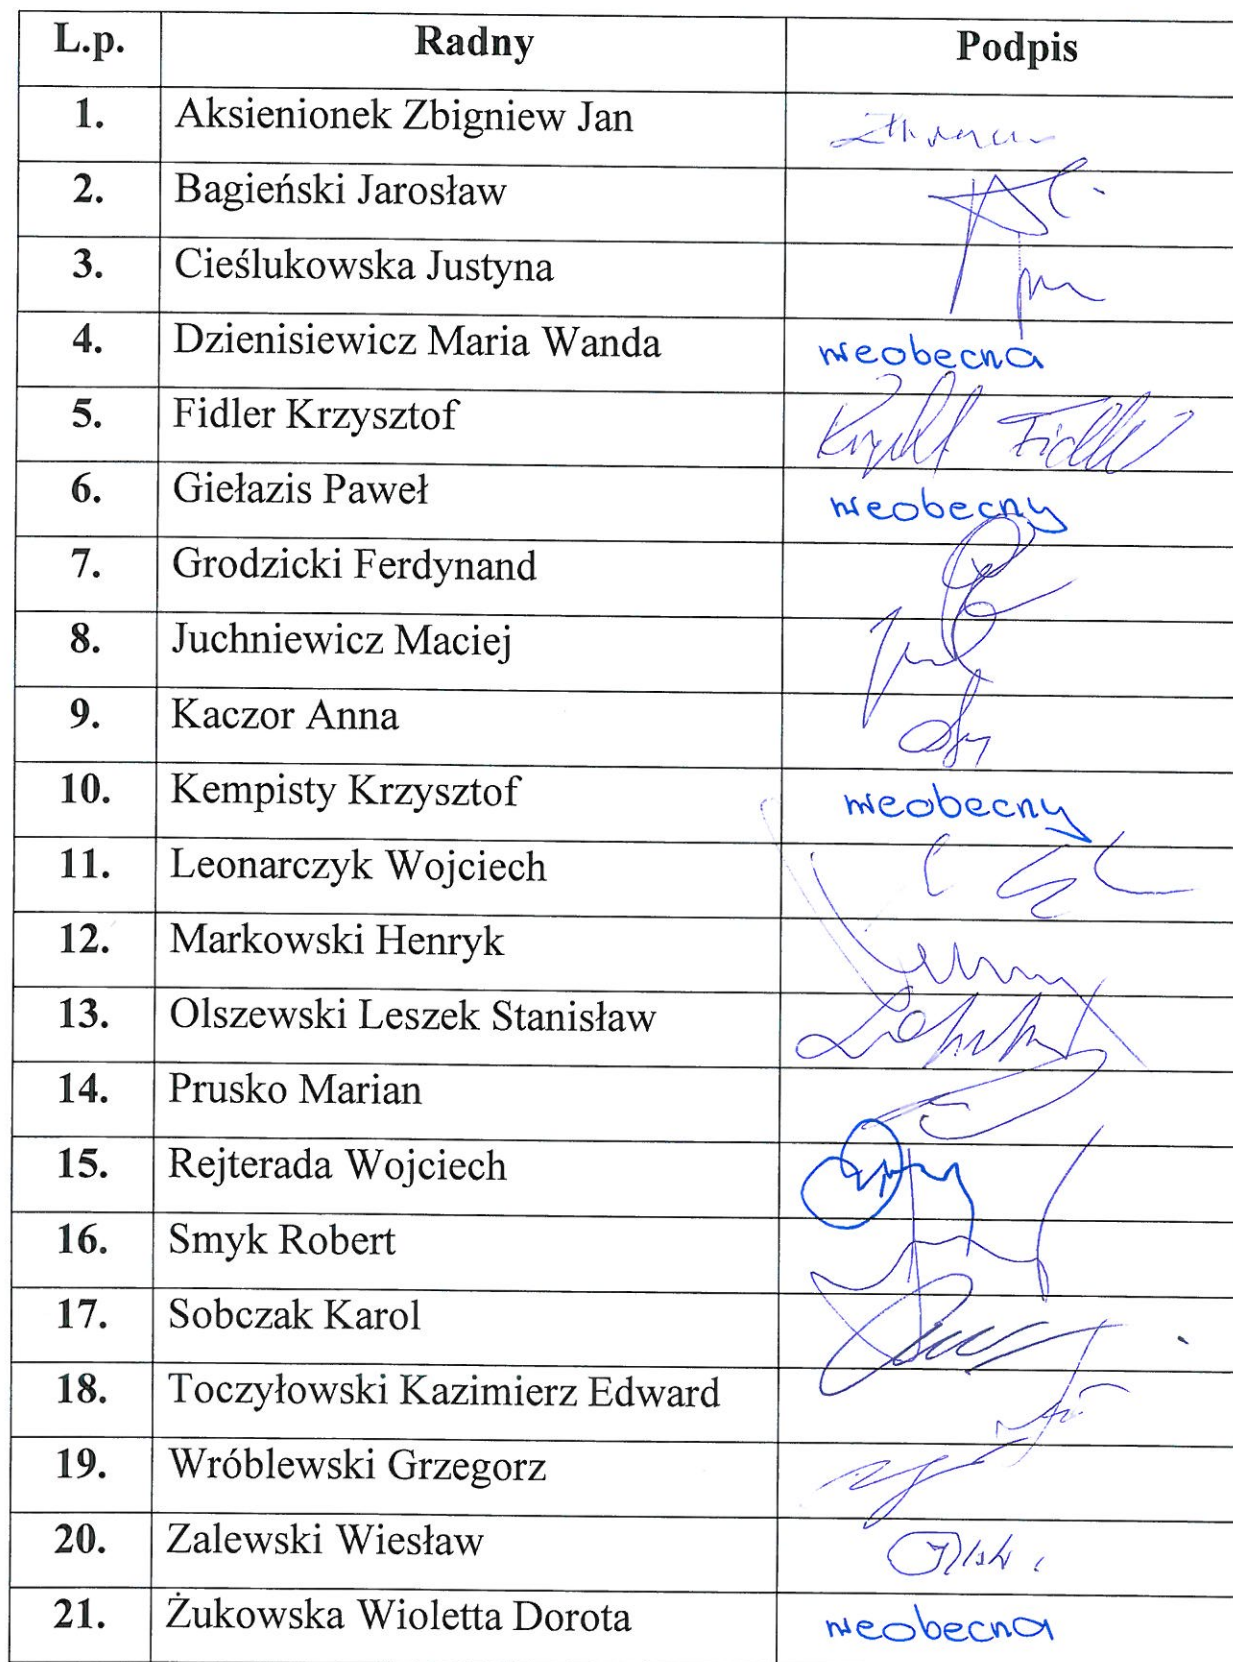 L.p. Radny Podpis
1. Aksienionek Zbigniew Jan
2. Bagieński Jarosław
3. Cieślukowska Justyna
4. Dzienisiewicz Maria Wanda nieobecna
5. Fidler Krzysztof Krzysztof Fidler
6. Giełazis Paweł nieobecny
7. Grodzicki Ferdynand
8. Juchniewicz Maciej
9. Kaczor Anna
10. Kempisty Krzysztof nieobecny
11. Leonarczyk Wojciech
12. Markowski Henryk
13. Olszewski Leszek Stanisław
14. Prusko Marian
15. Rejterada Wojciech
16. Smyk Robert
17. Sobczak Karol
18. Toczyłowski Kazimierz Edward
19. Wróblewski Grzegorz
20. Zalewski Wiesław
21. Żukowska Wioletta Dorota nieobecna